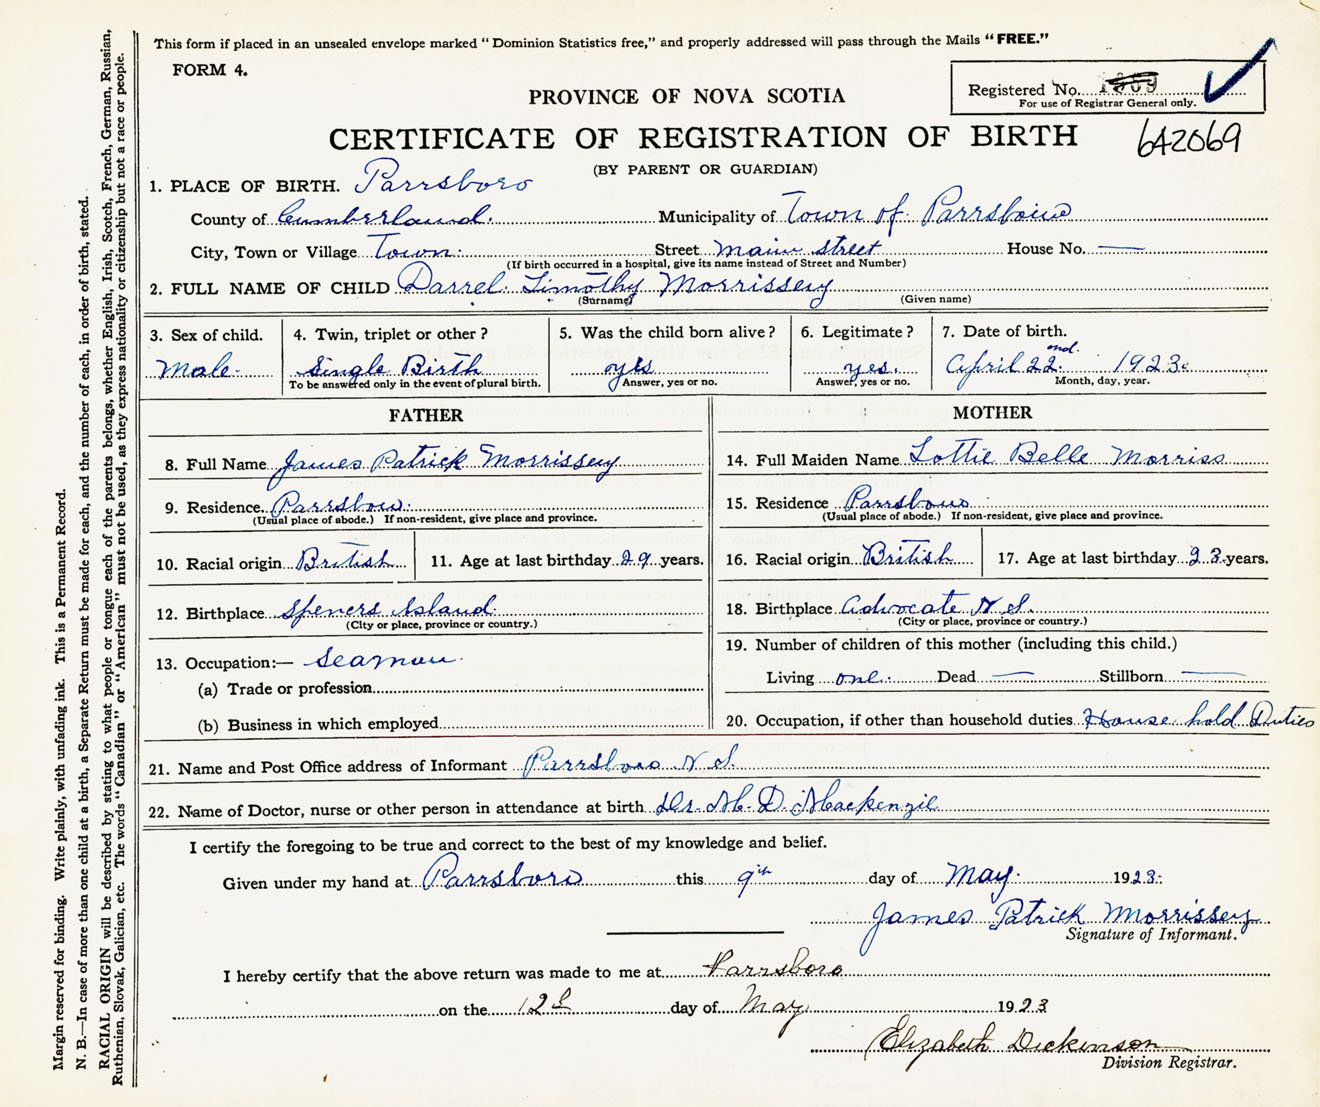 This form if placed in an unsealed envelope marked "Dominion Statistics free," and properly addressed will pass through the Mails "FREE."
FORM 4.
Registered No.
For use of Registrar General only.
PROVINCE OF NOVA SCOTIA
CERTIFICATE OF REGISTRATION OF BIRTH
642069
(BY PARENT OR GUARDIAN)
1. PLACE OF BIRTH. Parrsboro
County of Cumberland. Municipality of Town of Parrsboro
City, Town or Village Town. Street Main Street House No. —
(If birth occurred in a hospital, give its name instead of Street and Number)
2. FULL NAME OF CHILD Darrel Timothy Morrissey
(Surname) (Given name)
3. Sex of child. 4. Twin, triplet or other? 5. Was the child born alive? 6. Legitimate? 7. Date of birth.
Male. Single Birth yes yes. April 22nd. 1923.
To be answered only in the event of plural birth. Answer, yes or no. Answer, yes or no. Month, day, year.
FATHER
8. Full Name James Patrick Morrissey
9. Residence. Parrsboro.
(Usual place of abode.) If non-resident, give place and province.
10. Racial origin British 11. Age at last birthday 29 years.
12. Birthplace Speners Island
(City or place, province or country.)
13. Occupation:— Seaman.
(a) Trade or profession
(b) Business in which employed
MOTHER
14. Full Maiden Name Lottie Belle Morriss
15. Residence Parrsboro
(Usual place of abode.) If non-resident, give place and province.
16. Racial origin British 17. Age at last birthday 23 years.
18. Birthplace Advocate N S.
(City or place, province or country.)
19. Number of children of this mother (including this child.)
Living one. Dead — Stillborn —
20. Occupation, if other than household duties House hold Duties
21. Name and Post Office address of Informant Parrsboro N S.
22. Name of Doctor, nurse or other person in attendance at birth Dr. M. D. Mackenzie
I certify the foregoing to be true and correct to the best of my knowledge and belief.
Given under my hand at Parrsboro this 9th day of May. 1923.
James Patrick Morrissey
Signature of Informant.
I hereby certify that the above return was made to me at Parrsboro
on the 12th day of May 1923
Elizabeth Dickinson
Division Registrar.
Margin reserved for binding. Write plainly, with unfading ink. This is a Permanent Record.
N. B.—In case of more than one child at a birth, a Separate Return must be made for each, and the number of each, in order of birth, stated.
RACIAL ORIGIN will be described by stating to what people or tongue each of the parents belongs, whether English, Irish, Scotch, French, German, Russian,
Ruthenian, Slovak, Galician, etc. The words "Canadian" or "American" must not be used, as they express nationality or citizenship but not a race or people.